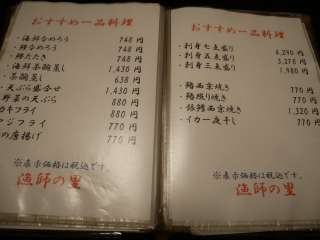 おすすめ一品料理
・海鮮なめろう 748円
・鯵なめろう 748円
・鯵たたき 748円
・海鮮茶碗蒸し 1,430円
・茶碗蒸し 638円
・天ぷら盛合せ 1,430円
野菜の天ぷら 880円
カキフライ 880円
アジフライ 770円
の唐揚げ 770円
※表示価格は税込です。
漁師の里
おすすめ一品料理
・刺身七点盛り 4,290円
・刺身五点盛り 3,278円
・刺身三点盛り 1,980円
西京焼き 770円
照り焼き 770円
・銀鱈西京焼き 1,320円
・イカ一夜干し 770円
※表示価格は税込です。
漁師の里